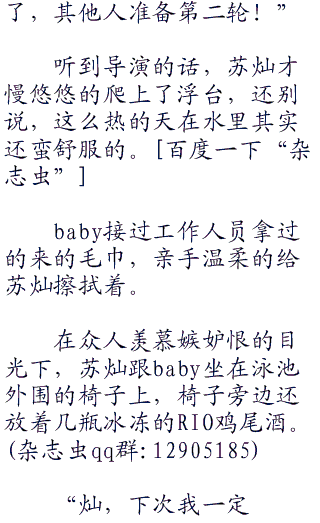 了，其他人准备第二轮！”
听到导演的话，苏灿才
慢悠悠的爬上了浮台，还别
说，这么热的天在水里其实
还蛮舒服的。[百度一下“杂
志虫”]
baby接过工作人员拿过
的来的毛巾，亲手温柔的给
苏灿擦拭着。
在众人羡慕嫉妒恨的目
光下，苏灿跟baby坐在泳池
外围的椅子上，椅子旁边还
放着几瓶冰冻的RIO鸡尾酒。
(杂志虫qq群:12905185)
“灿，下次我一定